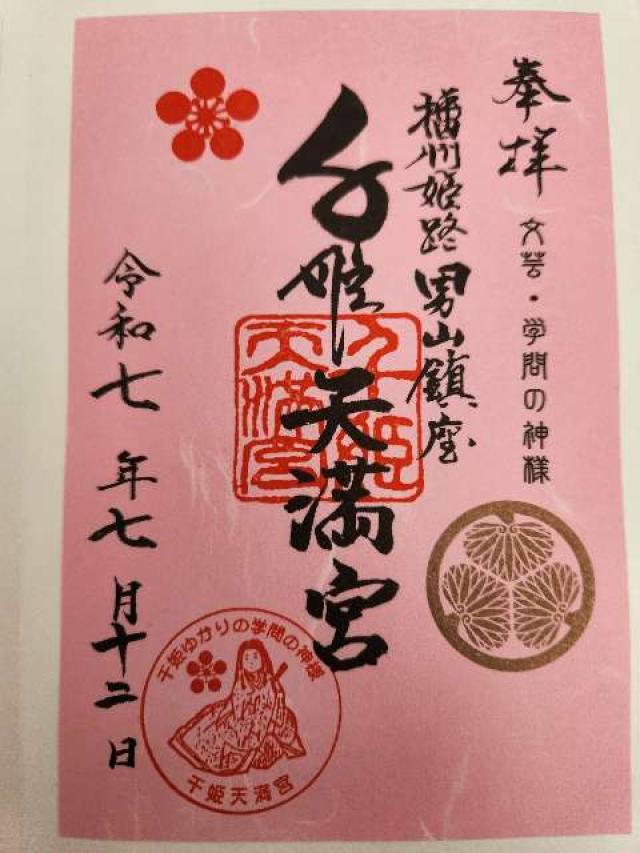 奉拝
文芸・学問の神様
播州姫路男山鎮座
千姫天満宮
千姫
天満宮
令和七年七月十二日
千姫ゆかりの学問の神様
千姫天満宮